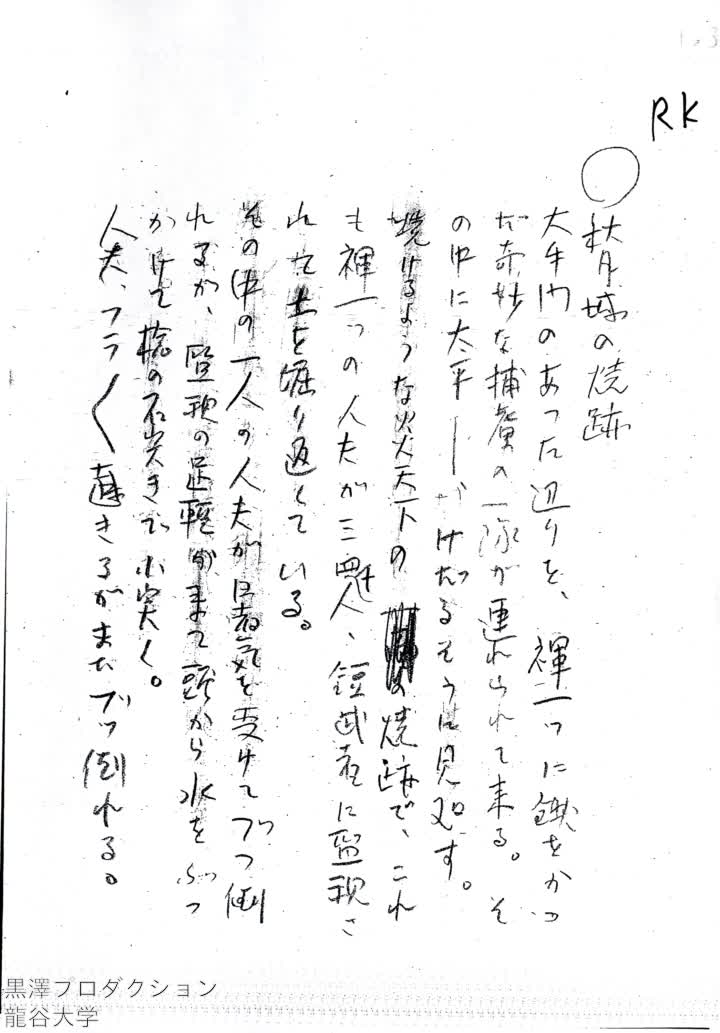 RK
○ 秋月城の焼跡
大手門のあった辺りを、褌一つに鍬をかつ
だ奇妙な捕虜の一隊が連れられて来る。そ
の中に太平 がけだるそうに見 す。
焼けるような炎天下の の焼跡で、これ
も褌一つの人夫が三四十人、鎧武者に監視さ
れて土を堀り返している。
その中の一人の人夫が暑気を受けてぶつ倒
れるが、監視の足軽が来て頭から水をぶつ
かけて槍の石突きで小突く。
人夫、フラ〱 起きるがまたブツ倒れる。
黒澤プロダクション
龍谷大学